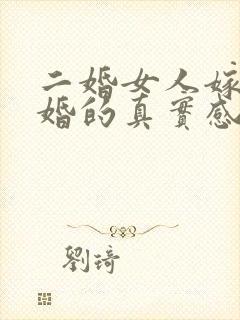 二婚女人嫁
婚的真實感
劉琦